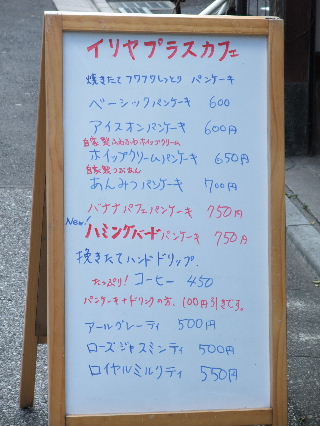 イリヤプラスカフェ
焼きたてフワフワしっとり パンケーキ
ベーシックパンケーキ 600
アイスオンパンケーキ 600円
自家製ふわふわホイップクリーム
ホイップクリームパンケーキ 650円
自家製つぶあん
あんみつパンケーキ 700円
バナナパフェパンケーキ 750円
New!
ハミングバードパンケーキ 750円
挽きたてハンドドリップ.
たっぷり! コーヒー 450
パンケーキ+ドリンクの方、100円引きです。
アールグレーティ 500円
ローズジャスミンティ 500円
ロイヤルミルクティ 550円